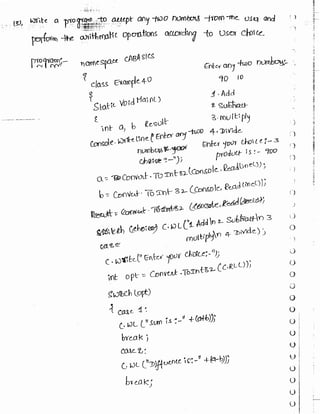 (3), Write a program to accept any two numbers from the user and
perform the arithmetic operations according to user choice.
Program:- namespace CABasics
{
class Example 4.0
{
Static void Main()
{
int a, b
Console.WriteLine("Enter any two
numbers
:-");
a = Convert.ToInt32(Console.ReadLine());
b = Convert.ToInt32(Console.ReadLine());
Switch C.WL("1. Add \n 2. Subtract \n 3
multiply \n 4. Divide");
C.Write("Enter your choice:-");
int opt = Convert.ToInt32(C.RL());
Switch(opt)
{
case 1:
C.WL("Sum is :-" + (a+b));
break;
case 2:
C.WL("Difference is:-" + (a-b));
break;
Enter any two numbers:-
90 10
1. Add
2. Subtract
3. multiply
4. Divide
Enter your choice:- 3
product is :- 900